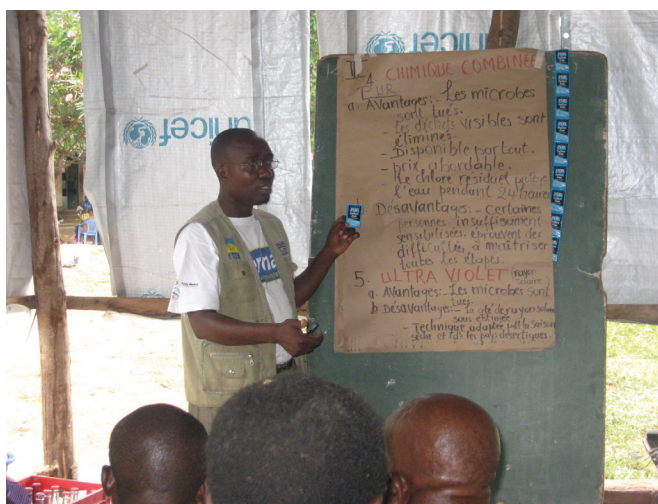 unicef
unicef
4 CHIMIQUE COMBINEE
PUR
a. Avantages:- Les microbes
sont tués.
- Les déchets visibles sont
éliminés.
- Disponible partout.
- prix abordable.
- le chlore résiduel protège
l'eau pendant 24 heures
Désavantages:- Certaines
personnes insuffisament
sensibilisées, éprouvent des
difficultés à maîtriser
toutes les étapes.
5. ULTRA VIOLET rayon solaire
a. Avantages:- Les microbes sont
tués.
b Désavantages:- la qté de rayon
sous estimée
- Technique adaptée pdt la saison
sèche et ds les pays désertiques.